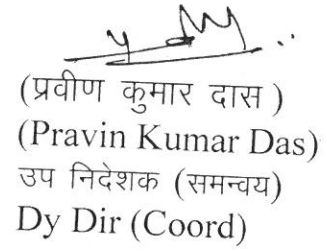 (प्रवीण कुमार दास)
(Pravin Kumar Das)
उप निदेशक (समन्वय)
Dy Dir (Coord)